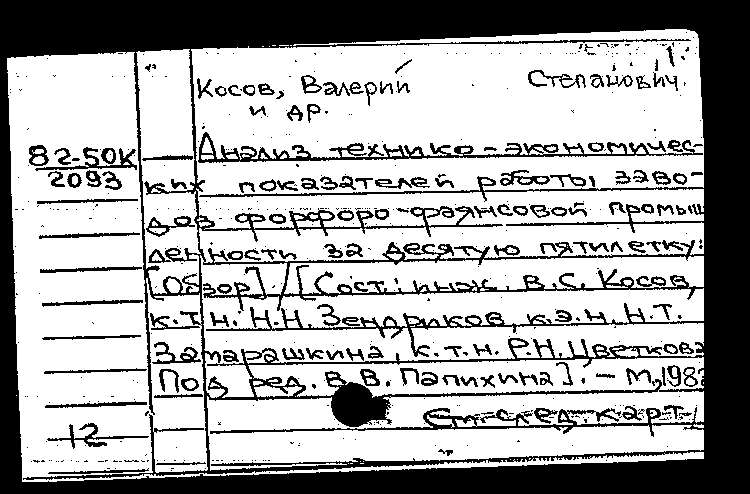 Косов, Валерий Степанович.
и др.
82-50К
2093
Анализ технико-экономичес-
ких показателей работы заво-
дов фарфоро-фаянсовой промыш
ленности за десятую пятилетку:
[Обзор] / [Сост.: инж. В.С. Косов,
к.т.н. Н.Н. Зендриков, к.э.н. Н.Т.
Затарашкина, к.т.н. Р.Н. Цветкова
Под ред. В.В. Папихина]. - М, 1982
См. след. карт
12